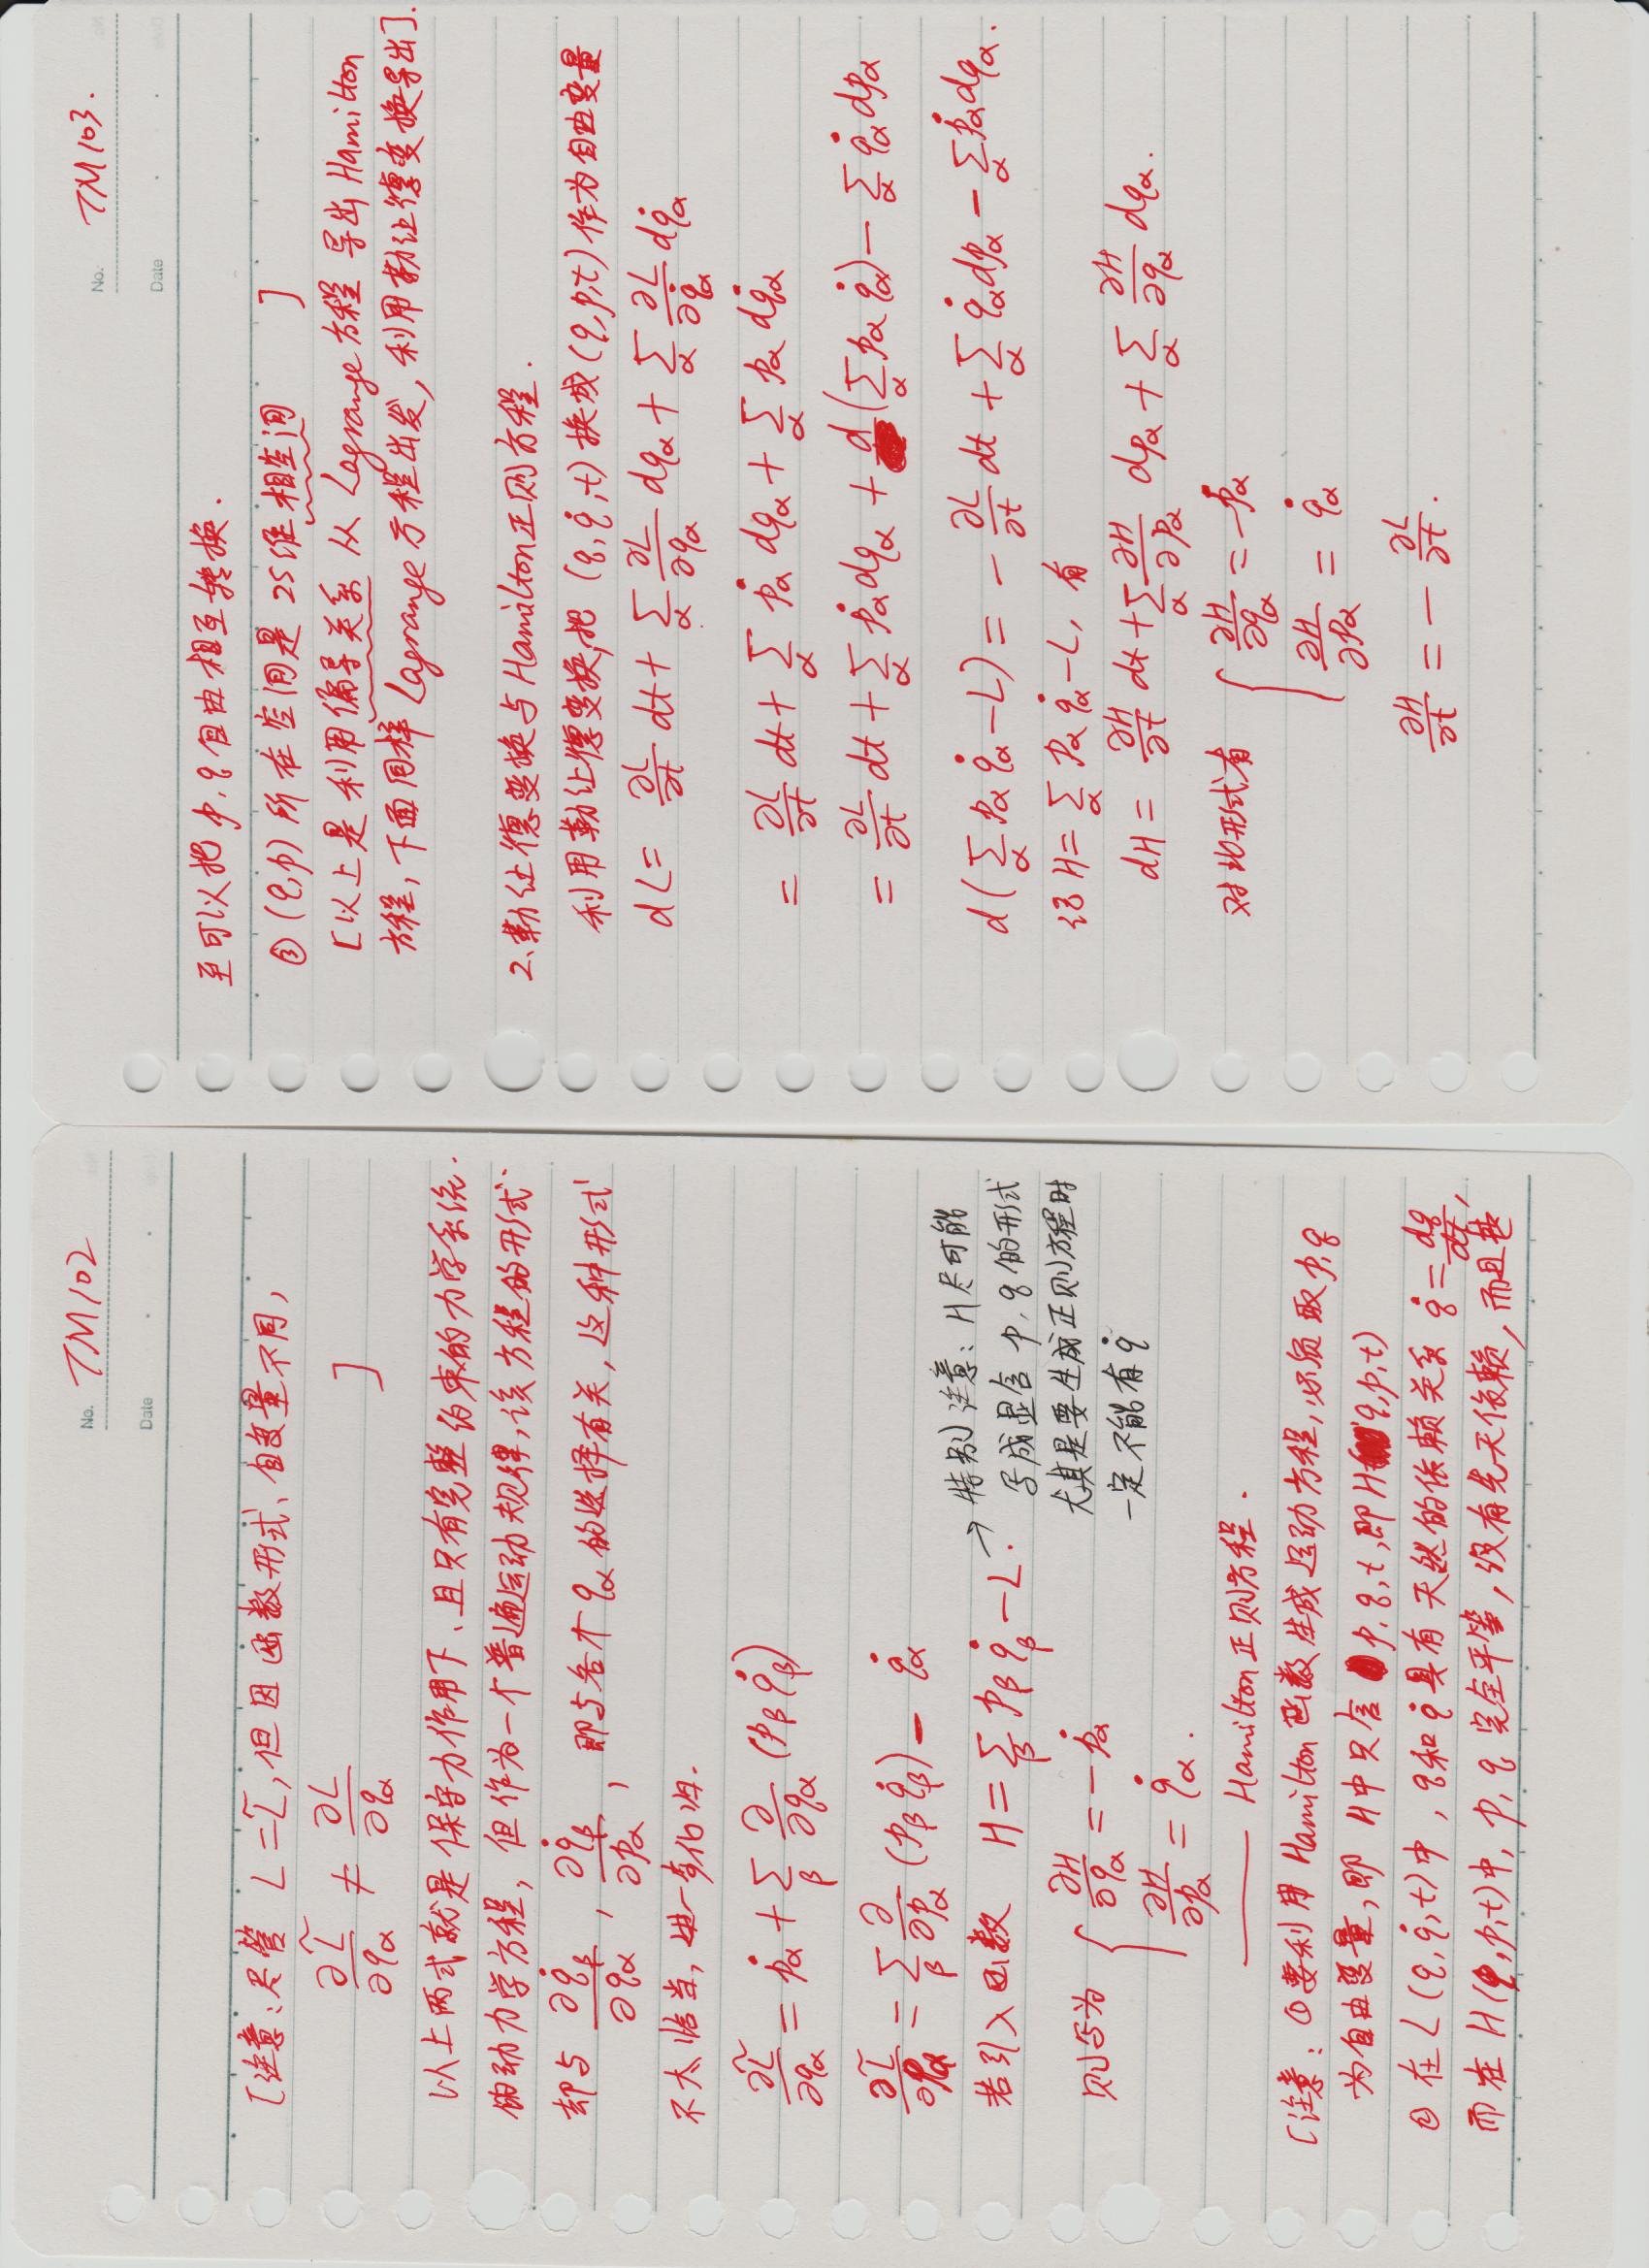 No. TM102
Date
[注意:尽管 L = L̃, 但因函数形式、自变量不同,
∂L̃/∂qα ≠ ∂L/∂qα ]
以上两式就是保守力作用下、且只有完整约束的力学系统.
的动力学方程, 但作为一个普遍运动规律, 该方程的形式
却与 ∂q̇β/∂qα , ∂q̇β/∂pα , 即与各个 qα 的选择有关, 这种形式
不太恰当, 进一步化归.
∂L̃/∂qα = ṗα + Σβ ∂/∂qα (pβ q̇β)
∂L̃/∂pα = Σβ ∂/∂pα (pβ q̇β) - q̇α
若引入函数 H = Σβ pβ q̇β - L.
→ 特别注意: H尽可能
写成显含 p, q 的形式
尤其是要生成正则方程时
一定不能有 q̇
则写为 { ∂H/∂qα = -ṗα
∂H/∂pα = q̇α .
—— Hamilton正则方程.
[注意: ①要利用 Hamilton 函数生成运动方程, 必须取 p, q
为自由变量, 即 H中只含 p, q, t, 即 H(q, p, t)
② 在 L(q, q̇, t)中, q和 q̇ 具有天然的依赖关系 q̇ = dq/dt,
而在 H(q, p, t)中, p, q 完全平等, 没有先天依赖, 而且甚
No. TM103.
Date
至可以把 p, q 自由相互转换.
③ (q, p) 所在空间是 2S维相空间 ]
[以上是利用偏导关系 从 Lagrange方程 导出 Hamilton
方程, 下面同样 Lagrange 方程出发, 利用勒让德变换导出].
2. 勒让德变换与Hamilton正则方程.
利用勒让德变换, 把 (q, q̇, t) 换成 (q, p, t) 作为自由变量
dL = ∂L/∂t dt + Σα ∂L/∂qα dqα + Σα ∂L/∂q̇α dq̇α
= ∂L/∂t dt + Σα ṗα dqα + Σα pα dq̇α
= ∂L/∂t dt + Σα ṗα dqα + d(Σα pα q̇α) - Σα q̇α dpα
d(Σα pα q̇α - L) = - ∂L/∂t dt + Σα q̇α dpα - Σα ṗα dqα.
记 H = Σα pα q̇α - L, 有
dH = ∂H/∂t dt + Σα ∂H/∂pα dpα + Σα ∂H/∂qα dqα.
对比形式有 { ∂H/∂qα = -ṗα
∂H/∂pα = q̇α
∂H/∂t = - ∂L/∂t.